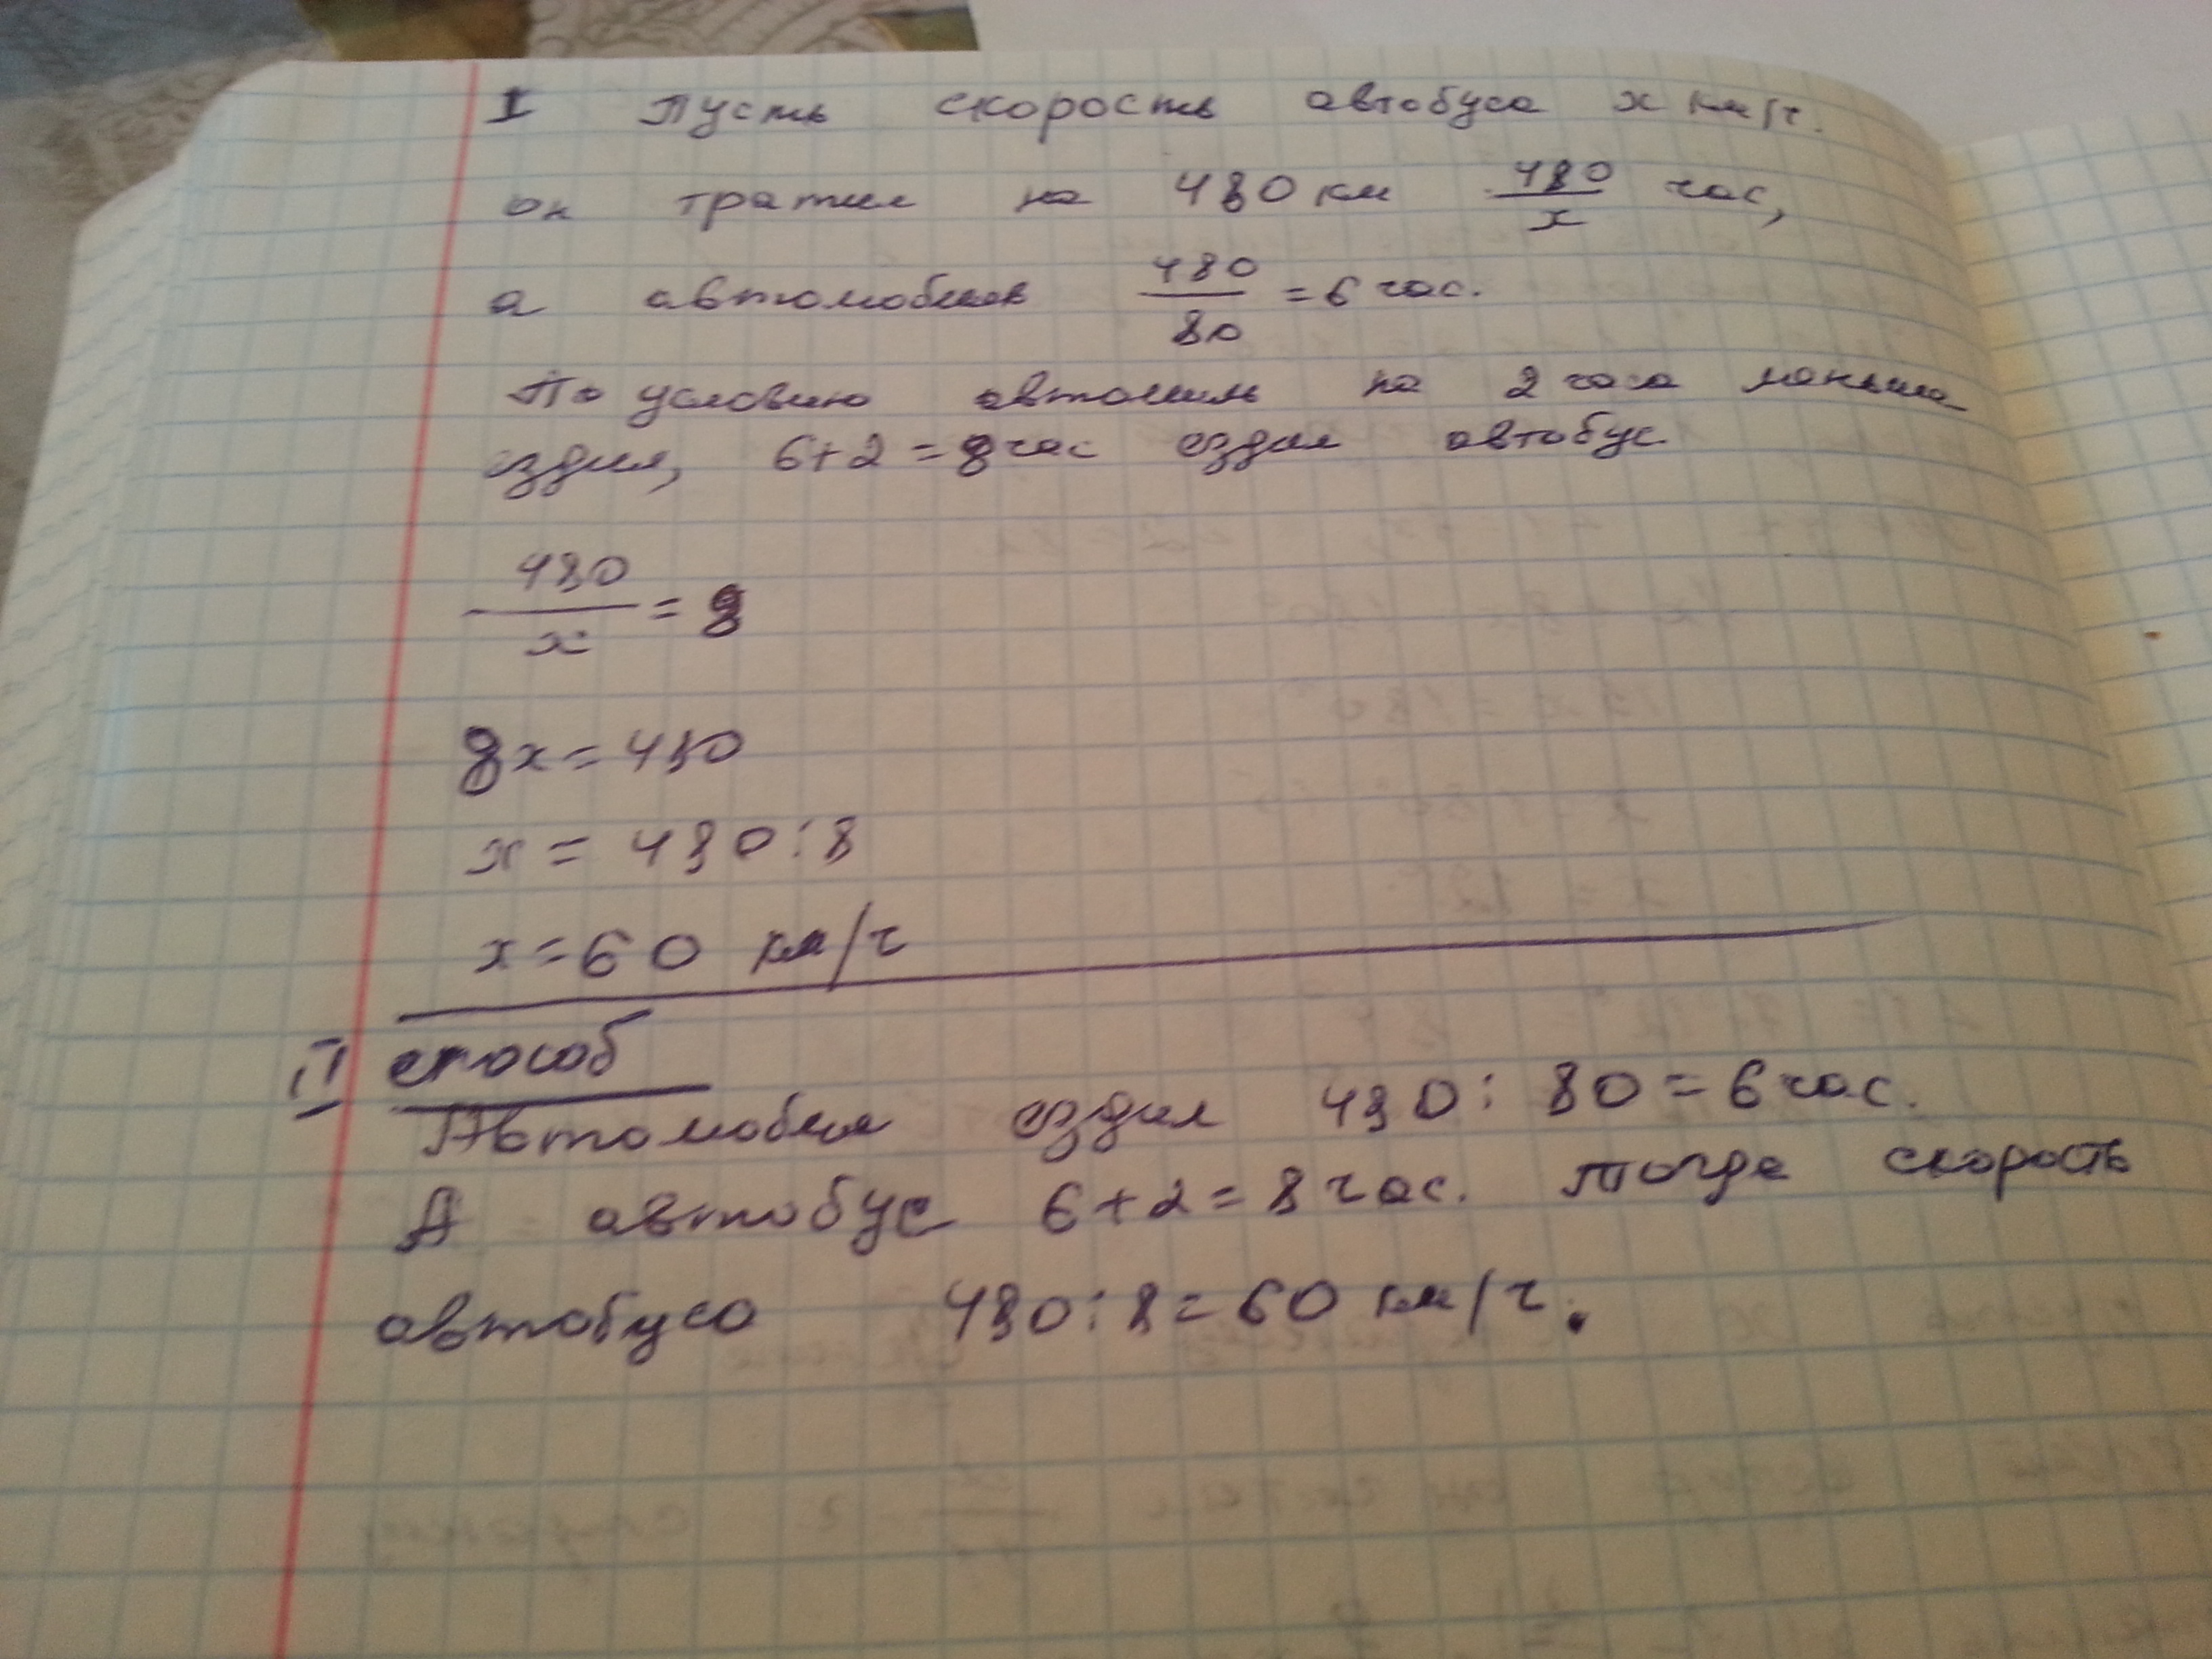 I Пусть скорость автобуса x км/ч.
он тратил на 480 км 480/x час,
а автомобиль 480/80 = 6 час.
По условию автомиль на 2 часа меньше
ездил, 6+2=8 час ездил автобус.
480/x = 8
8x=480
x = 480:8
x=60 км/ч
II способ
Автомобиль ездил 480: 80=6 час.
А автобус 6+2=8 час. тогда скорость
автобуса 480:8=60 км/ч.